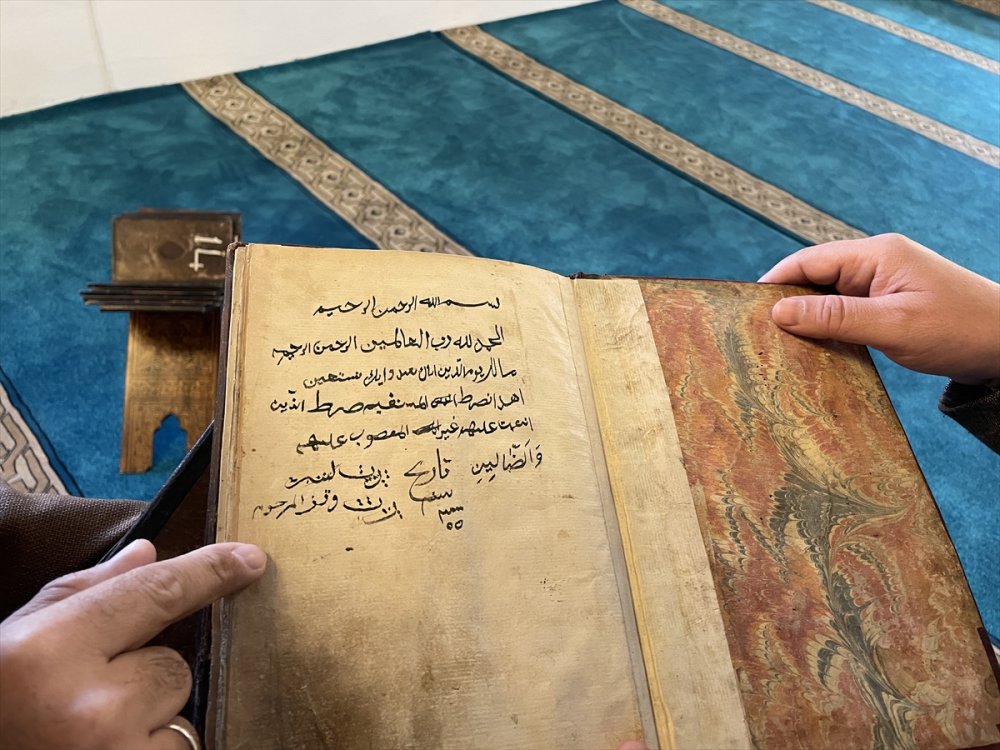 بسم الله الرحمن الرحيم
الحمد لله رب العالمين الرحمن الرحيم
مالك يوم الدين اياك نعبد واياك نستعين
اهدنا صرط المستقيم صرط الذين
انعمت عليهم غير المغضوب عليهم
وَالضّالِينِ تاريخ
وقف المرحوم
١٤